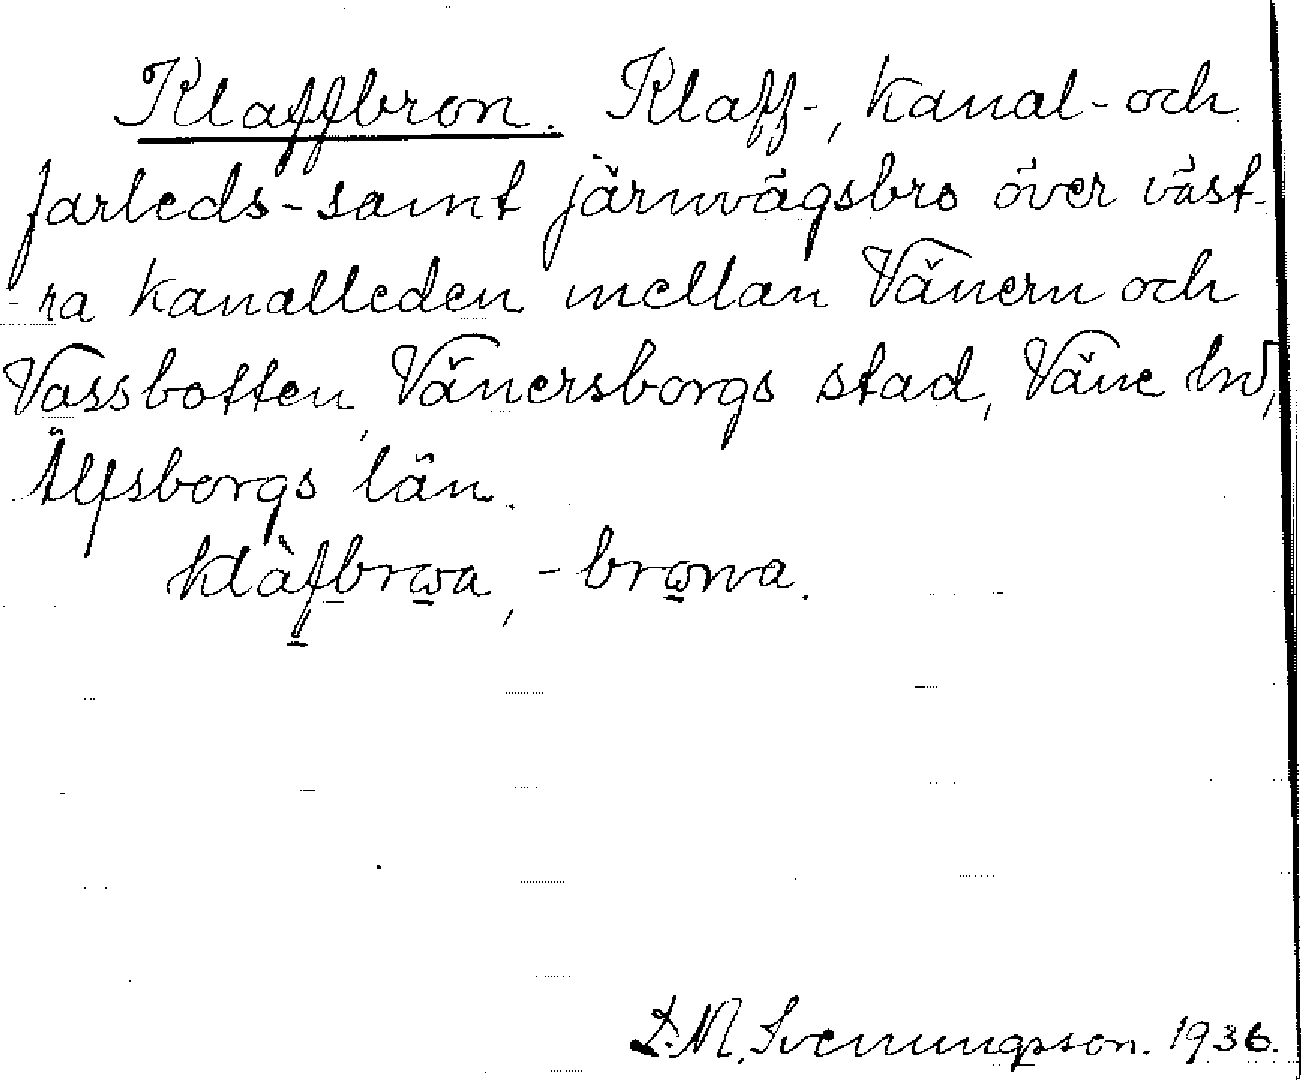 Klaffbron. Klaff-, kanal- och
farleds- samt järnvägsbro över väst-
ra kanalleden mellan Vänern och
Vassbotten, Vänersborgs stad, Väne hd,
Älfsborgs län.
-brωna.
D.M. Svenungsson. 1936.